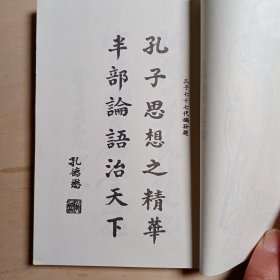 孔子七十七代嫡孫題
孔子思想之精華
半部論語治天下
孔德懋